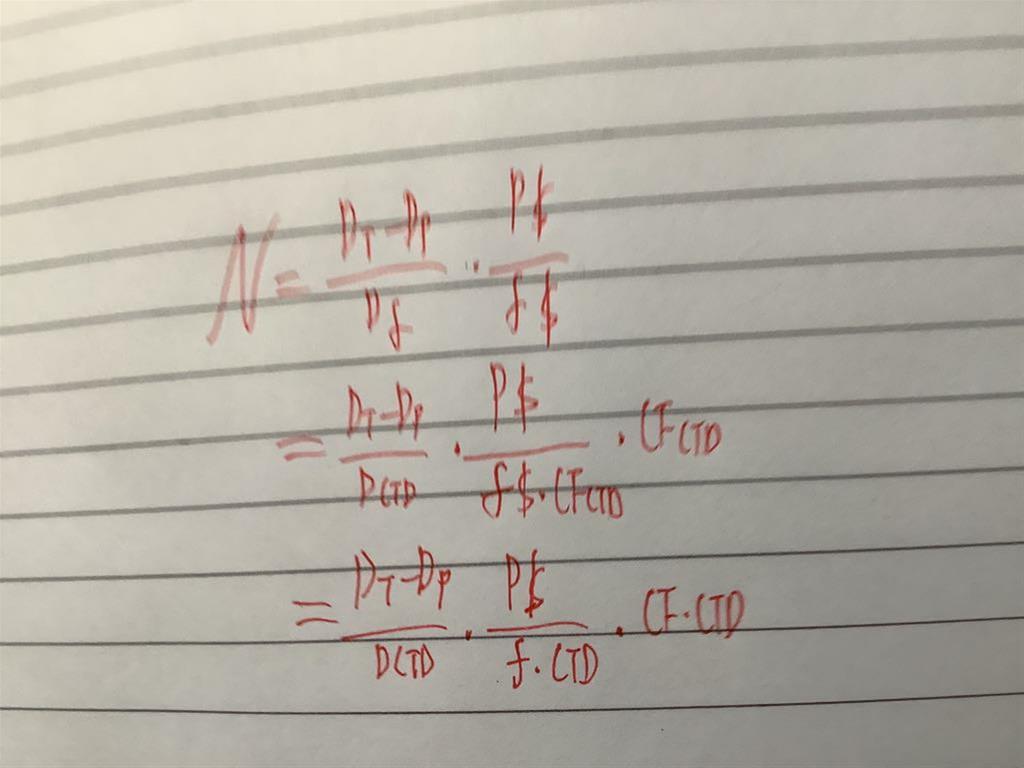 N = \frac{D_T - D_P}{D_f} \cdot \frac{P\$}{f\$}
= \frac{D_T - D_P}{D_{CTD}} \cdot \frac{P\$}{f\$ \cdot CF_{CTD}} \cdot CF_{CTD}
= \frac{D_T - D_P}{D_{CTD}} \cdot \frac{P\$}{f \cdot CTD} \cdot CF \cdot CTD